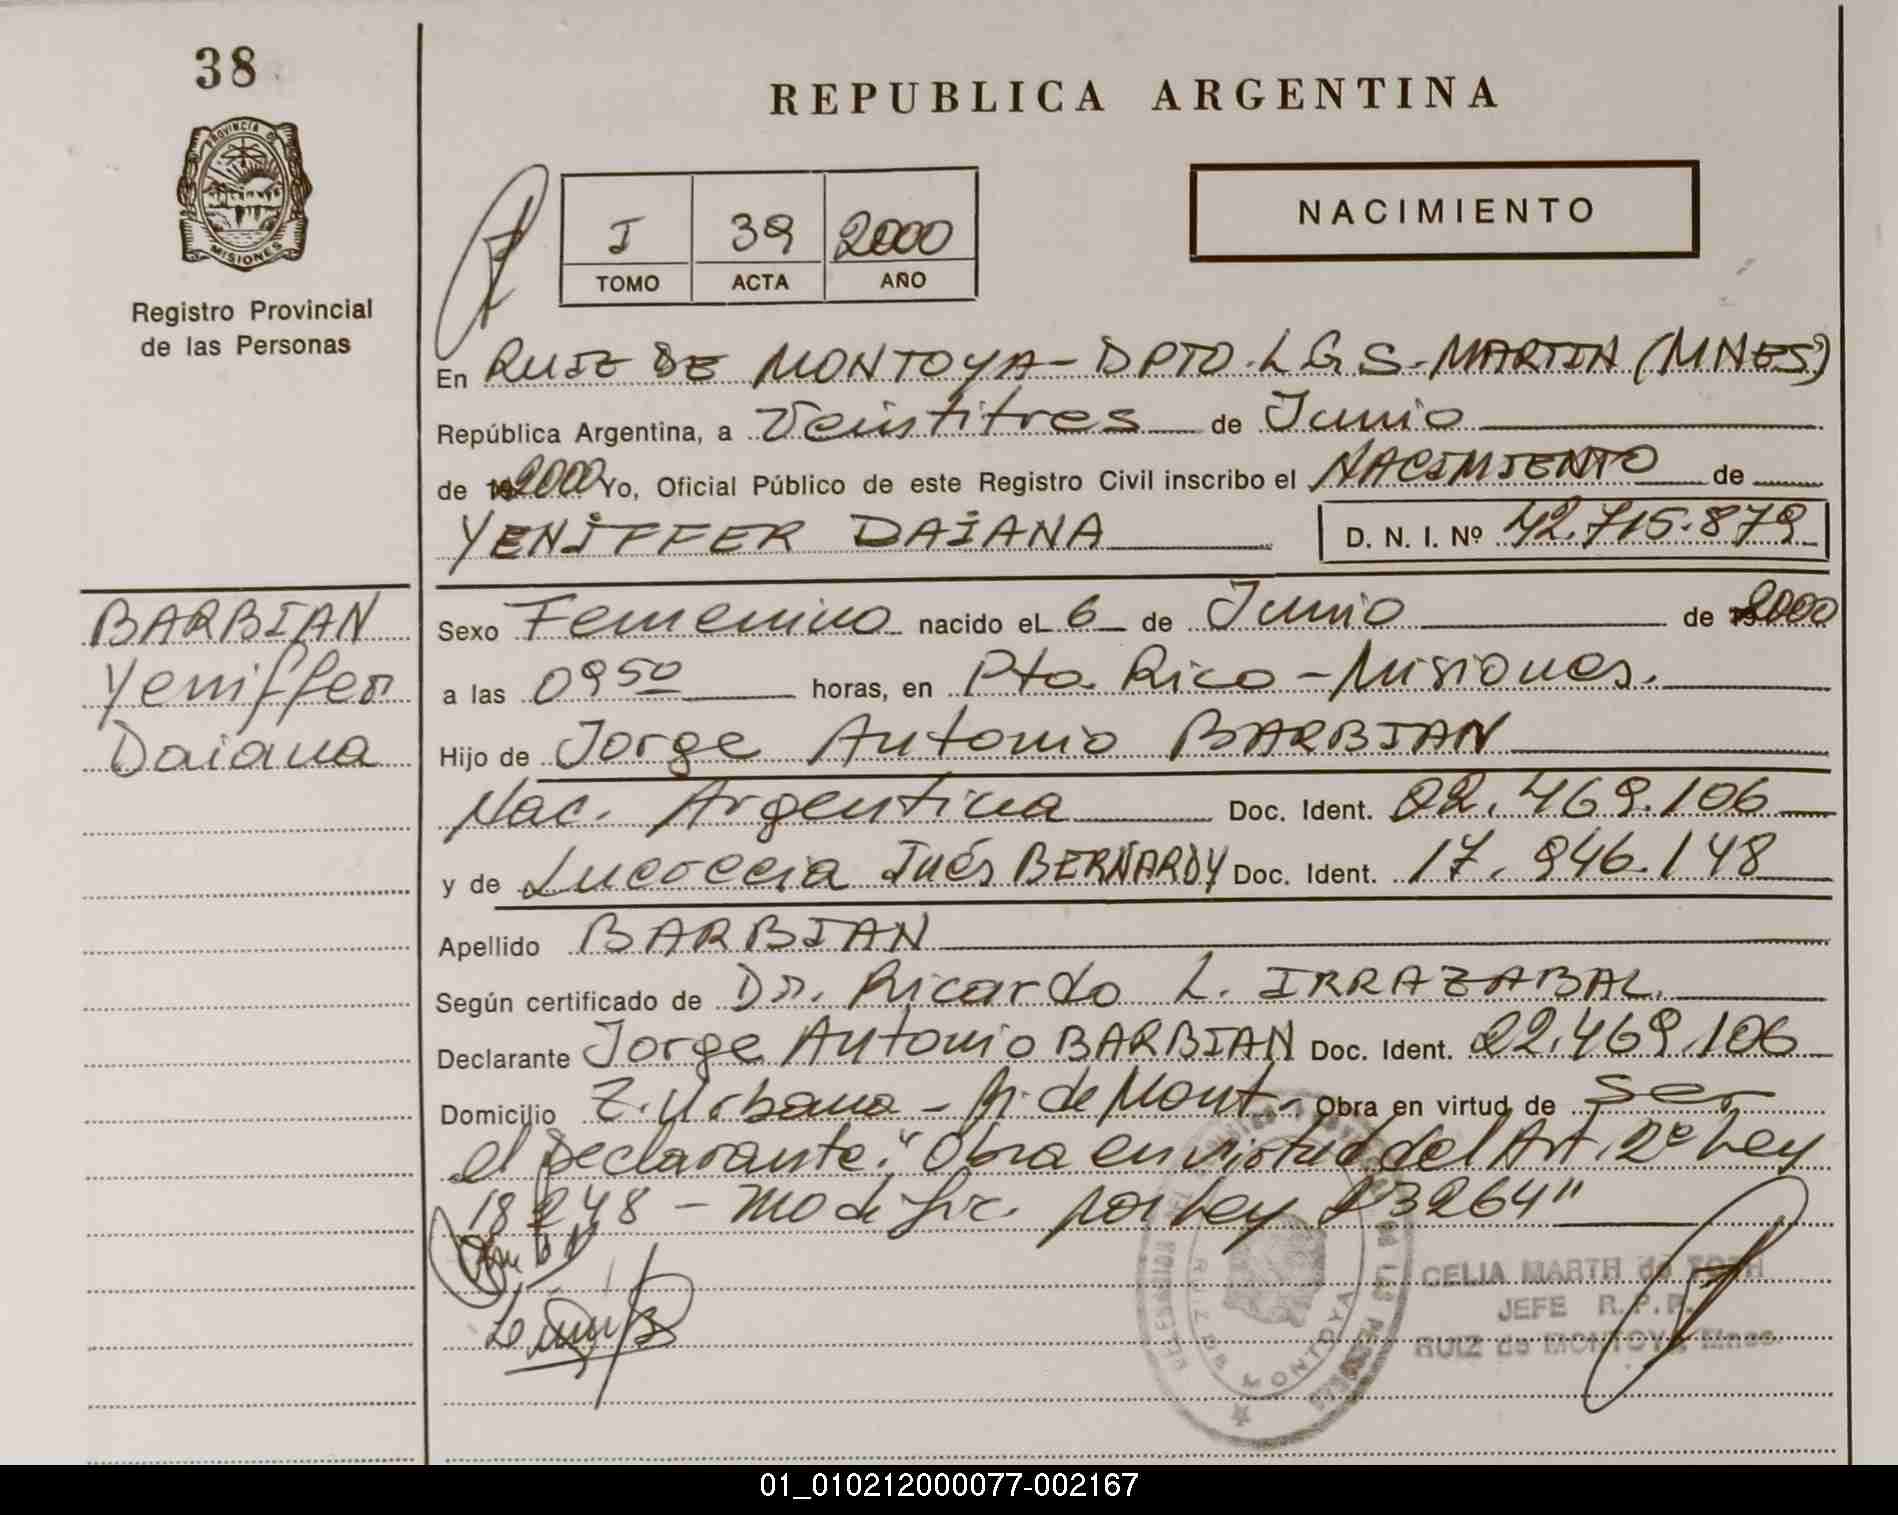 38
REPUBLICA ARGENTINA
PROVINCIA DE
MISIONES
Registro Provincial
de las Personas
I 39 2000
TOMO ACTA AÑO
NACIMIENTO
En RUIZ DE MONTOYA - DPTO. L G S. MARTIN (MNES)
República Argentina, a Veintitres de Junio
de 2000 Yo, Oficial Público de este Registro Civil inscribo el NACIMIENTO de
YENIFFER DAIANA D. N. I. Nº 42.715.879
BARBIAN
Yeniffer
Daiana
Sexo Femenino nacido el 6 de Junio de 2000
a las 09 50 horas, en Pto. Rico - Misiones.
Hijo de Jorge Antonio BARBIAN
Nac. Argentina Doc. Ident. 22.469.106
y de Lucrecia Inés BERNARDY Doc. Ident. 17.946.148
Apellido BARBIAN
Según certificado de Dr. Ricardo L. IRRAZABAL.
Declarante Jorge Antonio BARBIAN Doc. Ident. 22.469.106
Domicilio Z. Urbana - R. de Mont. - Obra en virtud de ser
el Declarante. "Obra en virtud del Art. 2º Ley
18248 - modific. por Ley 23264"
CELIA MARTH de
JEFE R.P.P.
RUIZ de MONTOYA Mnes.
RUIZ DE MONTOYA
DE LAS PERSONAS
01_010212000077-002167